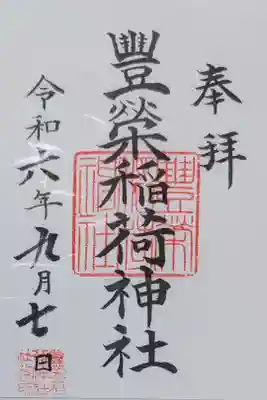 奉拝
豐榮稲荷神社
令和六年九月七日